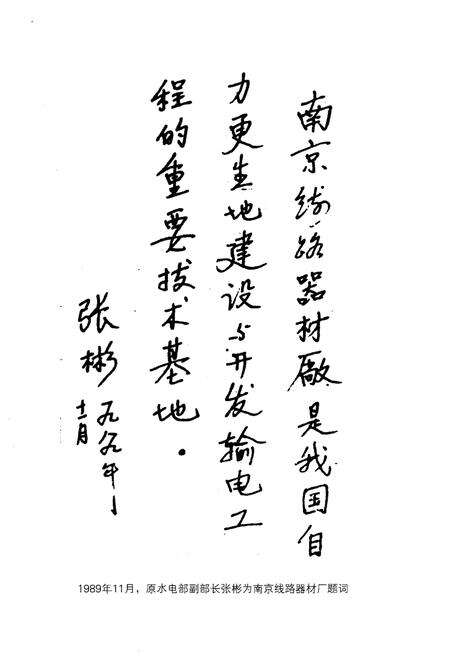 南京线路器材厰是我国自
力更生地建设与开发输电工
程的重要技术基地.
张彬 一九八九年
十一月
1989年11月，原水电部副部长张彬为南京线路器材厂题词